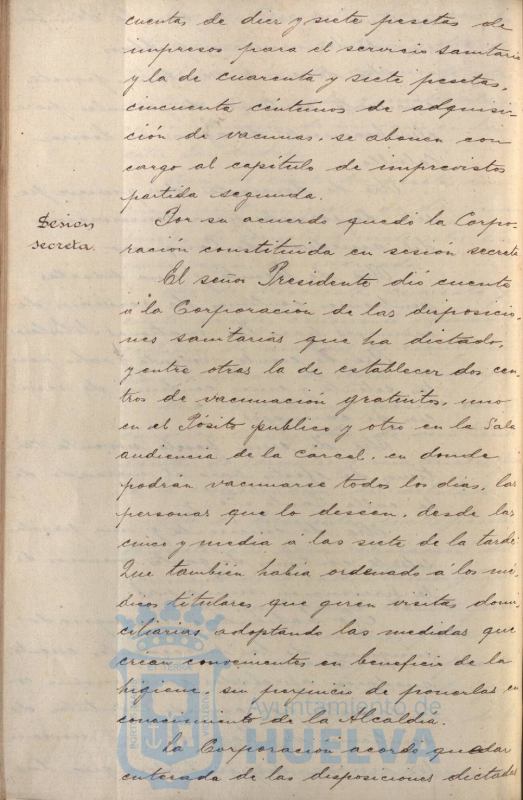 cuentas de diez y siete pesetas de
impresos para el servicio sanitario
y la de cuarenta y siete pesetas,
cincuenta céntimos de adquisi-
ción de vacunas, se abonen con
cargo al capítulo de imprevistos
partida segunda.
Sesion
secreta.
Por su acuerdo quedó la Corpo-
ración constituida en sesión secreta
El señor Presidente dió cuenta
á la Corporación de las disposicio-
nes sanitarias que ha dictado,
y entre otras la de establecer dos cen-
tros de vacunación gratuitos, uno
en el Pósito publico y otro en la Sala
audiencia de la cárcel, en donde
podrán vacunarse todos los dias, las
personas que lo deseen, desde las
cinco y media á las siete de la tarde.
Que también habia ordenado á los mé-
dicos titulares que giren visitas domi-
ciliarias, adoptando las medidas que
crean convenientes en beneficio de la
higiene, sin perjuicio de ponerlas en
conocimiento de la Alcaldia.
La Corporación acordó quedar
enterada de las disposiciones dictadas
Ayuntamiento de
HUELVA